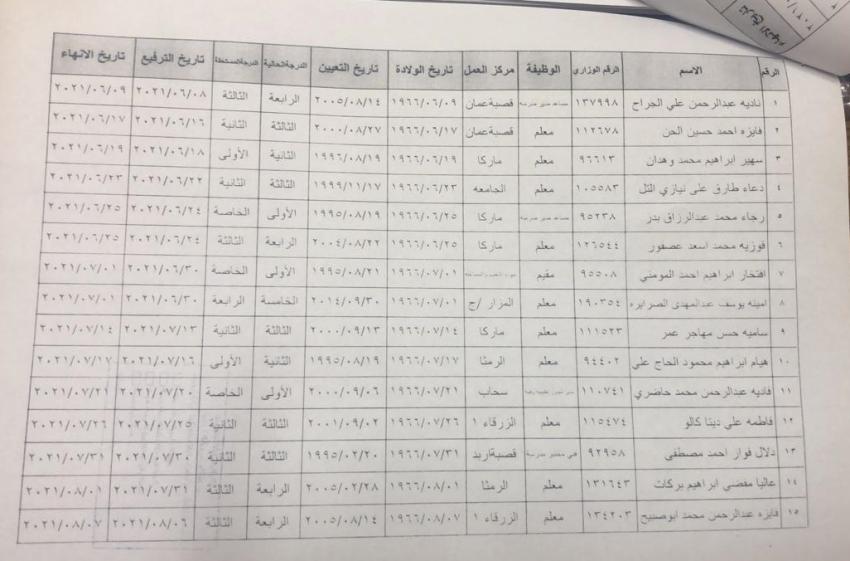 تاريخ الانهاء
٢٠٢١/٠
الرقم الاسم الرقم الوزاري الوظيفة مركز العمل تاريخ الولادة تاريخ التعيين الدرجة الحالية الدرجة المستحقة تاريخ الترفيع تاريخ الانهاء
١ ناديه عبدالرحمن علي الجراح ١٣٧٩٩٨ مساعد مدير مدرسة قصبة عمان ١٩٦٦/٠٦/٠٩ ٢٠٠٥/٠٨/١٤ الرابعة الثالثة ٢٠٢١/٠٦/٠٨ ٢٠٢١/٠٦/٠٩
٢ فايزه احمد حسين الحن ١١٢٦٧٨ معلم قصبة عمان ١٩٦٦/٠٦/١٧ ٢٠٠٠/٠٨/٢٧ الثالثة الثانية ٢٠٢١/٠٦/١٦ ٢٠٢١/٠٦/١٧
٣ سهير ابراهيم محمد وهدان ٩٦٦١٣ معلم ماركا ١٩٦٦/٠٦/١٩ ١٩٩٦/٠٨/١٩ الثانية الأولى ٢٠٢١/٠٦/١٨ ٢٠٢١/٠٦/١٩
٤ دعاء طارق علي نيازي التل ١٠٥٥٨٣ معلم الجامعه ١٩٦٦/٠٦/٢٣ ١٩٩٩/١١/١٧ الثالثة الثانية ٢٠٢١/٠٦/٢٢ ٢٠٢١/٠٦/٢٣
٥ رجاء محمد عبدالرزاق بدر ٩٥٢٣٨ مساعد مدير مدرسة ماركا ١٩٦٦/٠٦/٢٥ ١٩٩٥/٠٨/١٩ الأولى الخاصة ٢٠٢١/٠٦/٢٤ ٢٠٢١/٠٦/٢٥
٦ فوزيه محمد اسعد عصفور ١٢٦٥٤٤ معلم ماركا ١٩٦٦/٠٦/٢٥ ٢٠٠٤/٠٨/٢٢ الرابعة الثالثة ٢٠٢١/٠٦/٢٤ ٢٠٢١/٠٦/٢٥
٧ افتخار ابراهيم احمد المومني ٩٥٥٠٨ مقيم ١٩٦٦/٠٧/٠١ ١٩٩٥/٠٨/٢١ الأولى الخاصة ٢٠٢١/٠٦/٣٠ ٢٠٢١/٠٧/٠١
٨ امينه يوسف عبدالمهدي الصرايره ١٩٠٣٥٤ معلم المزار /ج ١٩٦٦/٠٧/٠١ ٢٠١٤/٠٩/٣٠ الخامسة الرابعة ٢٠٢١/٠٦/٣٠ ٢٠٢١/٠٧/٠١
٩ ساميه حسن مهاجر عمر ١١١٥٢٣ معلم ماركا ١٩٦٦/٠٧/١٤ ٢٠٠٠/٠٩/١٣ الثالثة الثانية ٢٠٢١/٠٧/١٣ ٢٠٢١/٠٧/١٤
١٠ هيام ابراهيم محمود الحاج علي ٩٤٤٠٢ معلم الرمثا ١٩٦٦/٠٧/١٧ ١٩٩٥/٠٨/١٩ الثانية الأولى ٢٠٢١/٠٧/١٦ ٢٠٢١/٠٧/١٧
١١ فاديه عبدالرحمن محمد حاضري ١١٠٧٤١ سحاب ١٩٦٦/٠٧/٢١ ٢٠٠٠/٠٩/٠٦ الأولى الخاصة ٢٠٢١/٠٧/٢٠ ٢٠٢١/٠٧/٢١
١٢ فاطمه علي ديتا كالو ١١٥٤٧٤ معلم الزرقاء ١ ١٩٦٦/٠٧/٢٦ ٢٠٠١/٠٩/٠٢ الثالثة الثانية ٢٠٢١/٠٧/٢٥ ٢٠٢١/٠٧/٢٦
١٣ دلال فواز احمد مصطفى ٩٢٩٥٨ فني مختبر مدرسة قصبة اربد ١٩٦٦/٠٧/٣١ ١٩٩٥/٠٢/٢٠ الثالثة الثانية ٢٠٢١/٠٧/٣٠ ٢٠٢١/٠٧/٣١
١٤ عاليا مفضي ابراهيم بركات ١٣١٦٤٣ معلم الرمثا ١٩٦٦/٠٨/٠١ ٢٠٠٥/٠٢/٢٨ الرابعة الثالثة ٢٠٢١/٠٧/٣١ ٢٠٢١/٠٨/٠١
١٥ فايزه عبدالرحمن محمد ابوصبيح ١٣٤٢٠٣ معلم الزرقاء ١ ١٩٦٦/٠٨/٠٧ ٢٠٠٥/٠٨/١٤ الرابعة الثالثة ٢٠٢١/٠٨/٠٦ ٢٠٢١/٠٨/٠٧